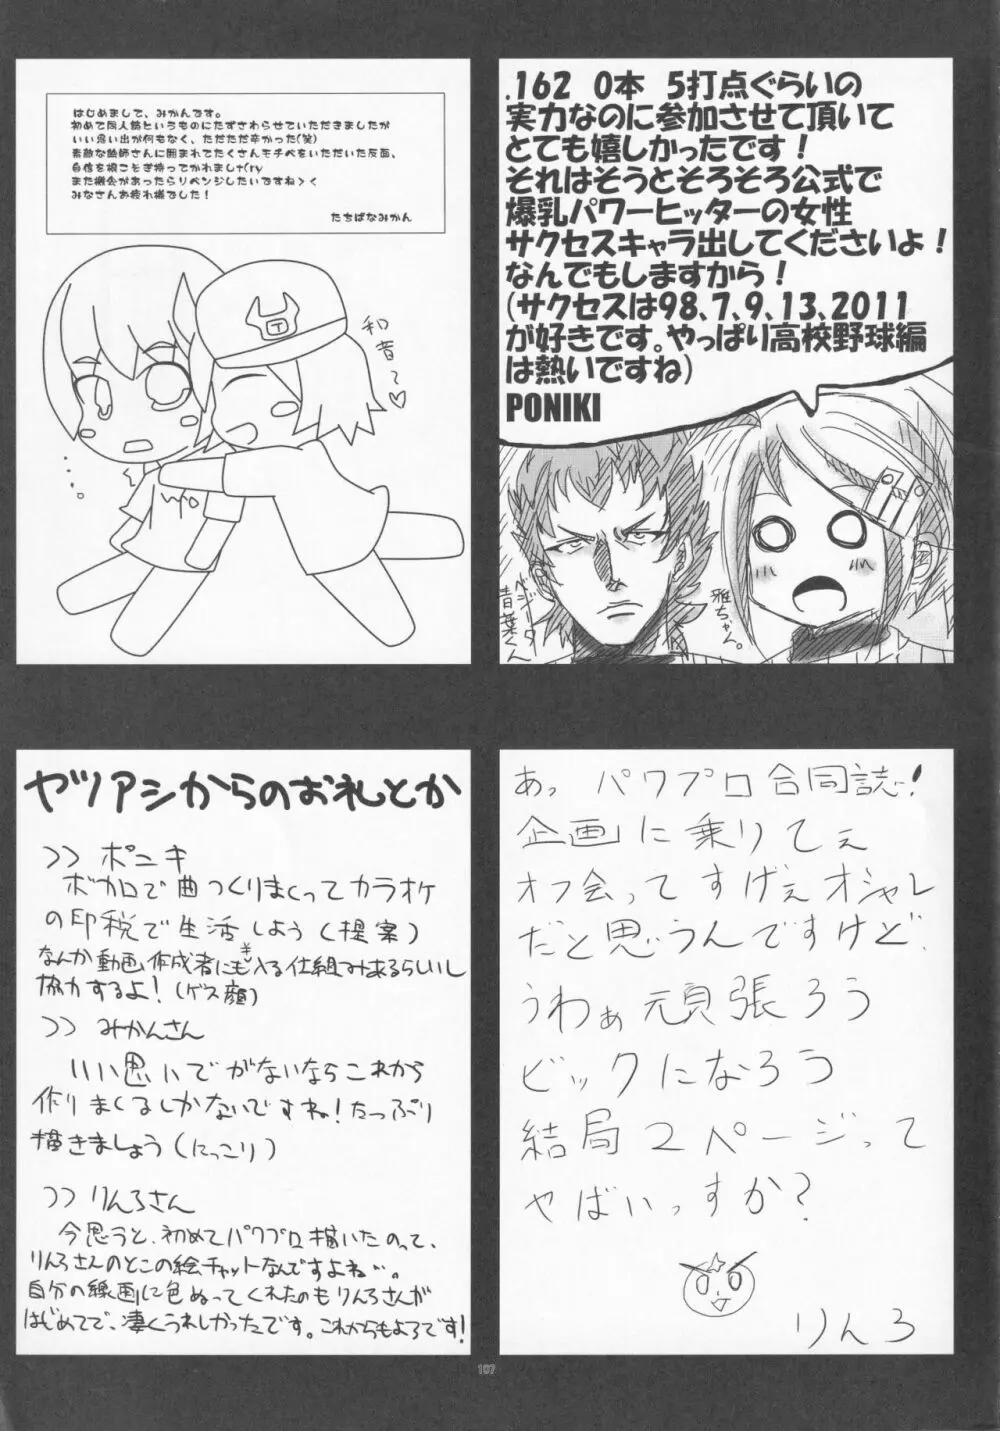 はじめまして、みかんです。
初めて同人誌というものにたずさわらせていただきましたが
いい思い出が何もなく、ただただ辛かった(笑)
素敵な絵師さんに囲まれてたくさんモチベをいただいた反面、
自信を根こそぎ持ってかれまし†(ry
また機会があったらリベンジしたいですね＞＜
みなさんお疲れ様でした！
たちばなみかん
和音～♡
.162　0本　5打点ぐらいの
実力なのに参加させて頂いて
とても嬉しかったです！
それはそうとそろそろ公式で
爆乳パワーヒッターの女性
サクセスキャラ出してくださいよ！
なんでもしますから！
(サクセスは98、7、9、13、2011
が好きです。やっぱり高校野球編
は熱いですね)
PONIKI
ベジータ
青葉くん
雅ちゃん。
ヤツアシからのお礼とか
>> ポニキ
ボカロで曲つくりまくってカラオケ
の印税で生活しよう(提案)
なんか動画作成者にも￥入る仕組み来るらしいし
協力するよ！(ゲス顔)
>> みかんさん
いい思いでがないならこれから
作りまくるしかないですね！たっぷり
描きましょう(にっこり)
>> りんろさん
今思うと、初めてパワプロ描いたのって、
りんろさんのとこの絵チャットなんですよね…。
自分の線画に色ぬってくれたのもりんろさんが
はじめてで、凄くうれしかったです。これからもよろです！
あっ パワプロ合同誌！
企画に乗りてぇ
オフ会ってすげぇオシャレ
だと思うんですけど、
うわぁ頑張ろう
ビックになろう
結局2ページって
やばいっすか？
りんろ
107